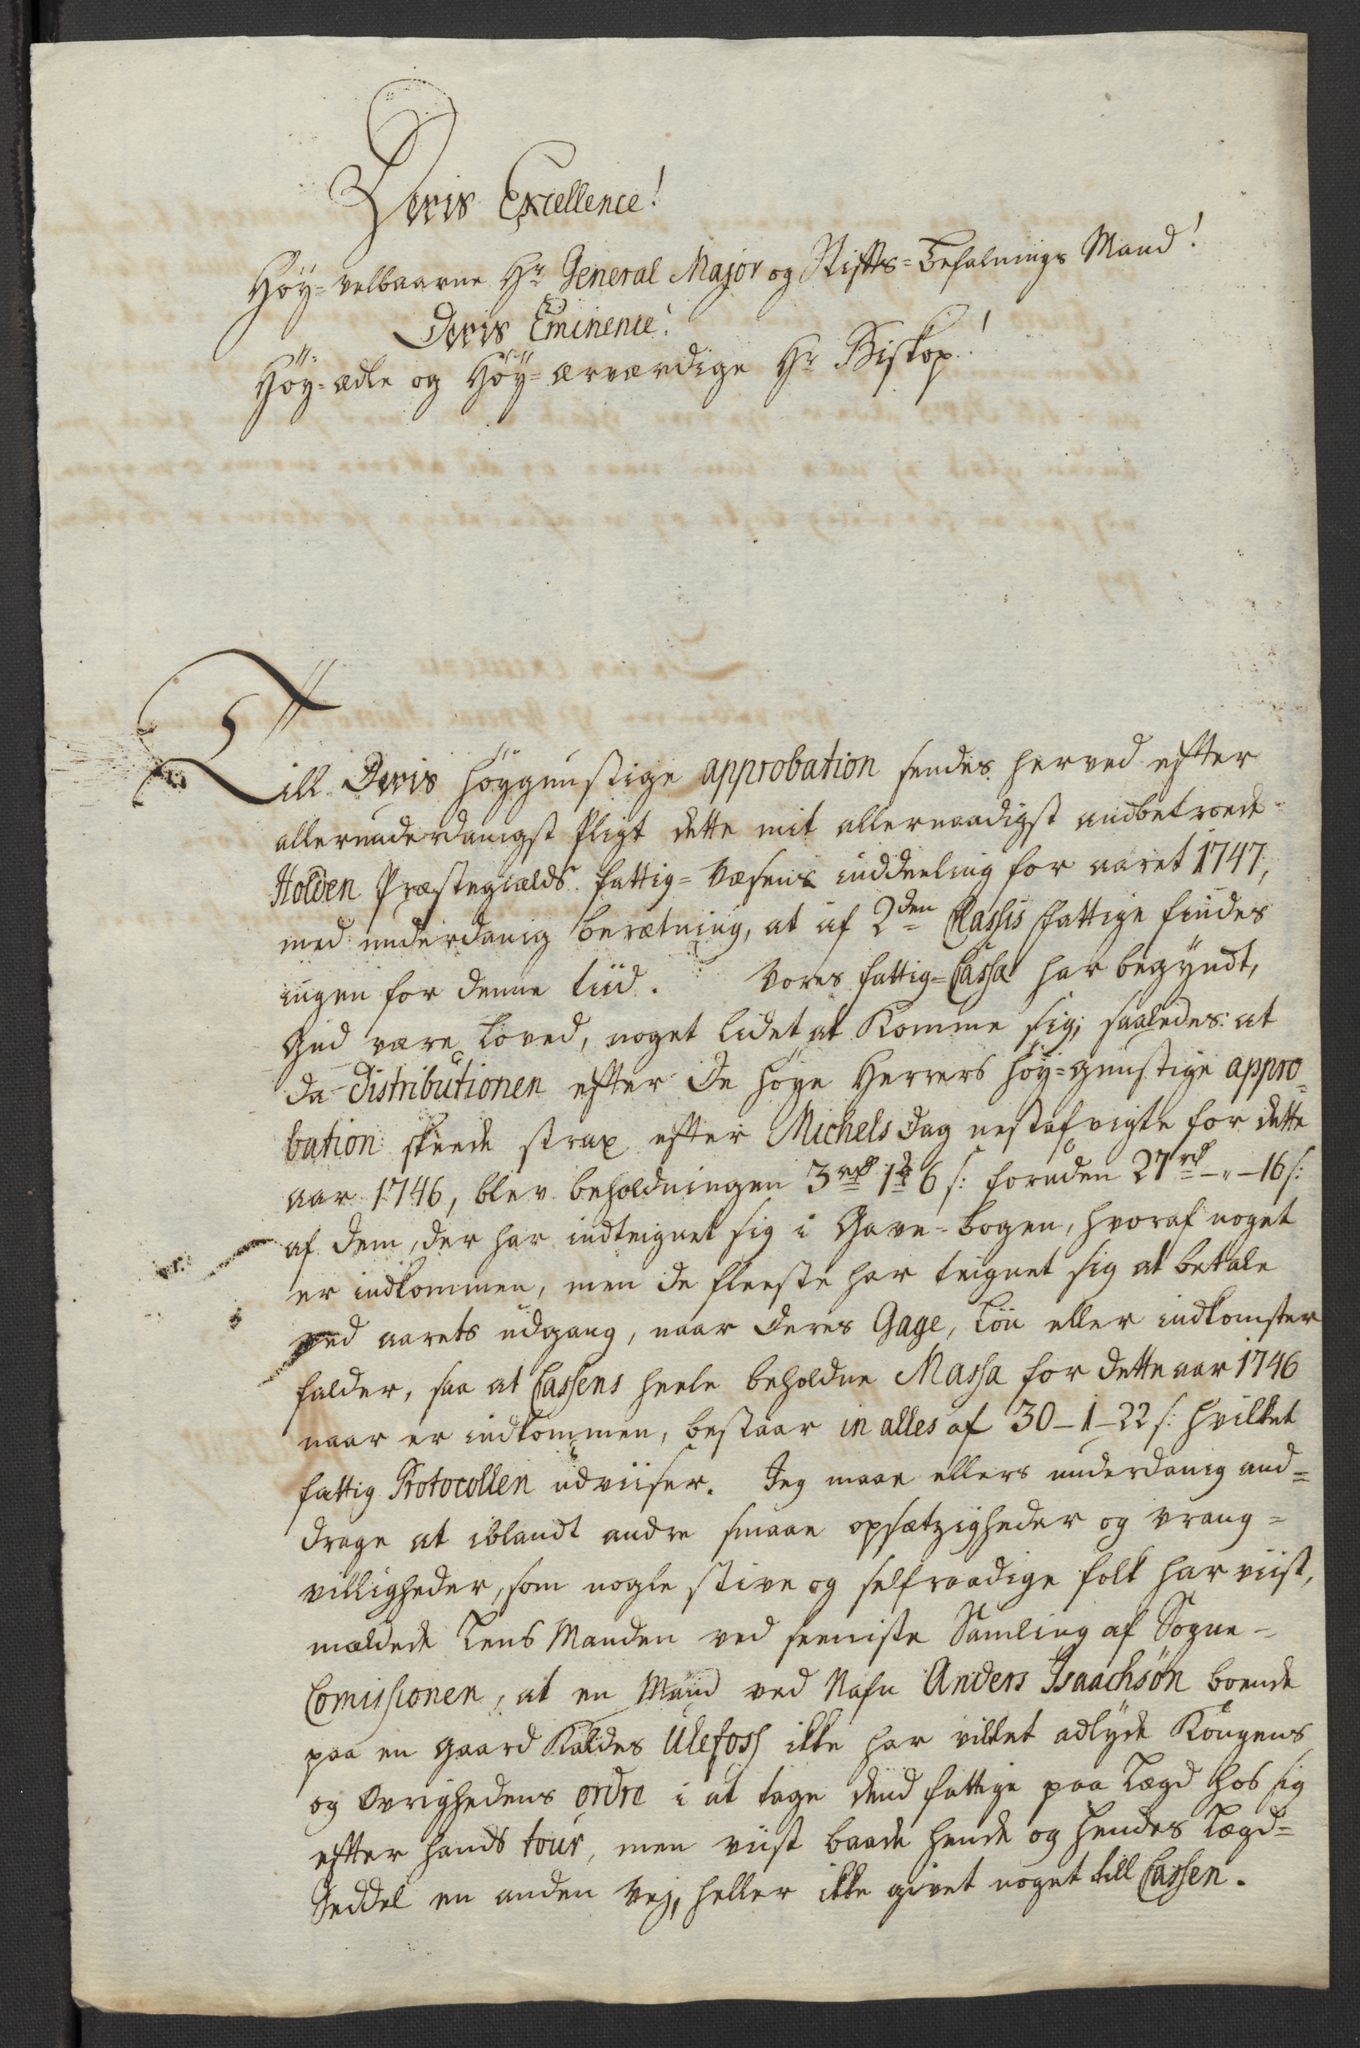 Deris Excellence!
Höy-velbaarne Hr General Major og Stifts-Befalnings Mand!
Deris Eminence!
Höy-ædle og Höy-ærværdige Hr Biskop!
Till Deris höygunstige approbation sendes herved efter
allerunderdanigst Pligt dette mit allernaadigst andbetroede
Holden Præstegields fattig-Væsens inddeeling for aaret 1747,
med underdanig beretning, at af 2den Classis fattige findes
ingen for denne tiid. Vores fattig-Cassa har begyndt,
Gud være loved, noget lidet at komme sig, saaledes: at
da Distributionen efter De höye Herrers höy-gunstige appro-
bation skeede strax efter Michels Dag nestafvigte for dette
aar 1746, blev beholdningen 3 rd 1 6 s: foruden 27 rd - " - 16 s:
af dem, der har indteignet sig i Gave-bogen, hvoraf noget
er indkommen, men de fleeste har teignet sig at betale
ved aarets udgang, naar deres Gage, Lön eller indkomster
falder, saa at Cassens heele beholdne Massa for dette aar 1746
naar er indkommen, bestaar in alles af 30 - 1 - 22 s: hvilket
fattig Protocollen udviiser. Jeg maae ellers underdanig and-
drage at iblandt andre smaae opsætzigheder og vrang-
villigheder, som nogle stive og selfraadige folk har viist,
mældede Lens Manden ved seeniste Samling af Sogne-
Comissionen, at en Mand ved Nafn Anders Isaachsön boende
paa en gaard kaldes Ulefoss ikke har villet adlyde Kongens
og Övrighedens ordre i at tage dend fattige paa Lægd hos sig
efter hands tour, men viist baade hende og hendes Lægd-
Seddel en anden vej, heller ikke givet noget till Cassen.